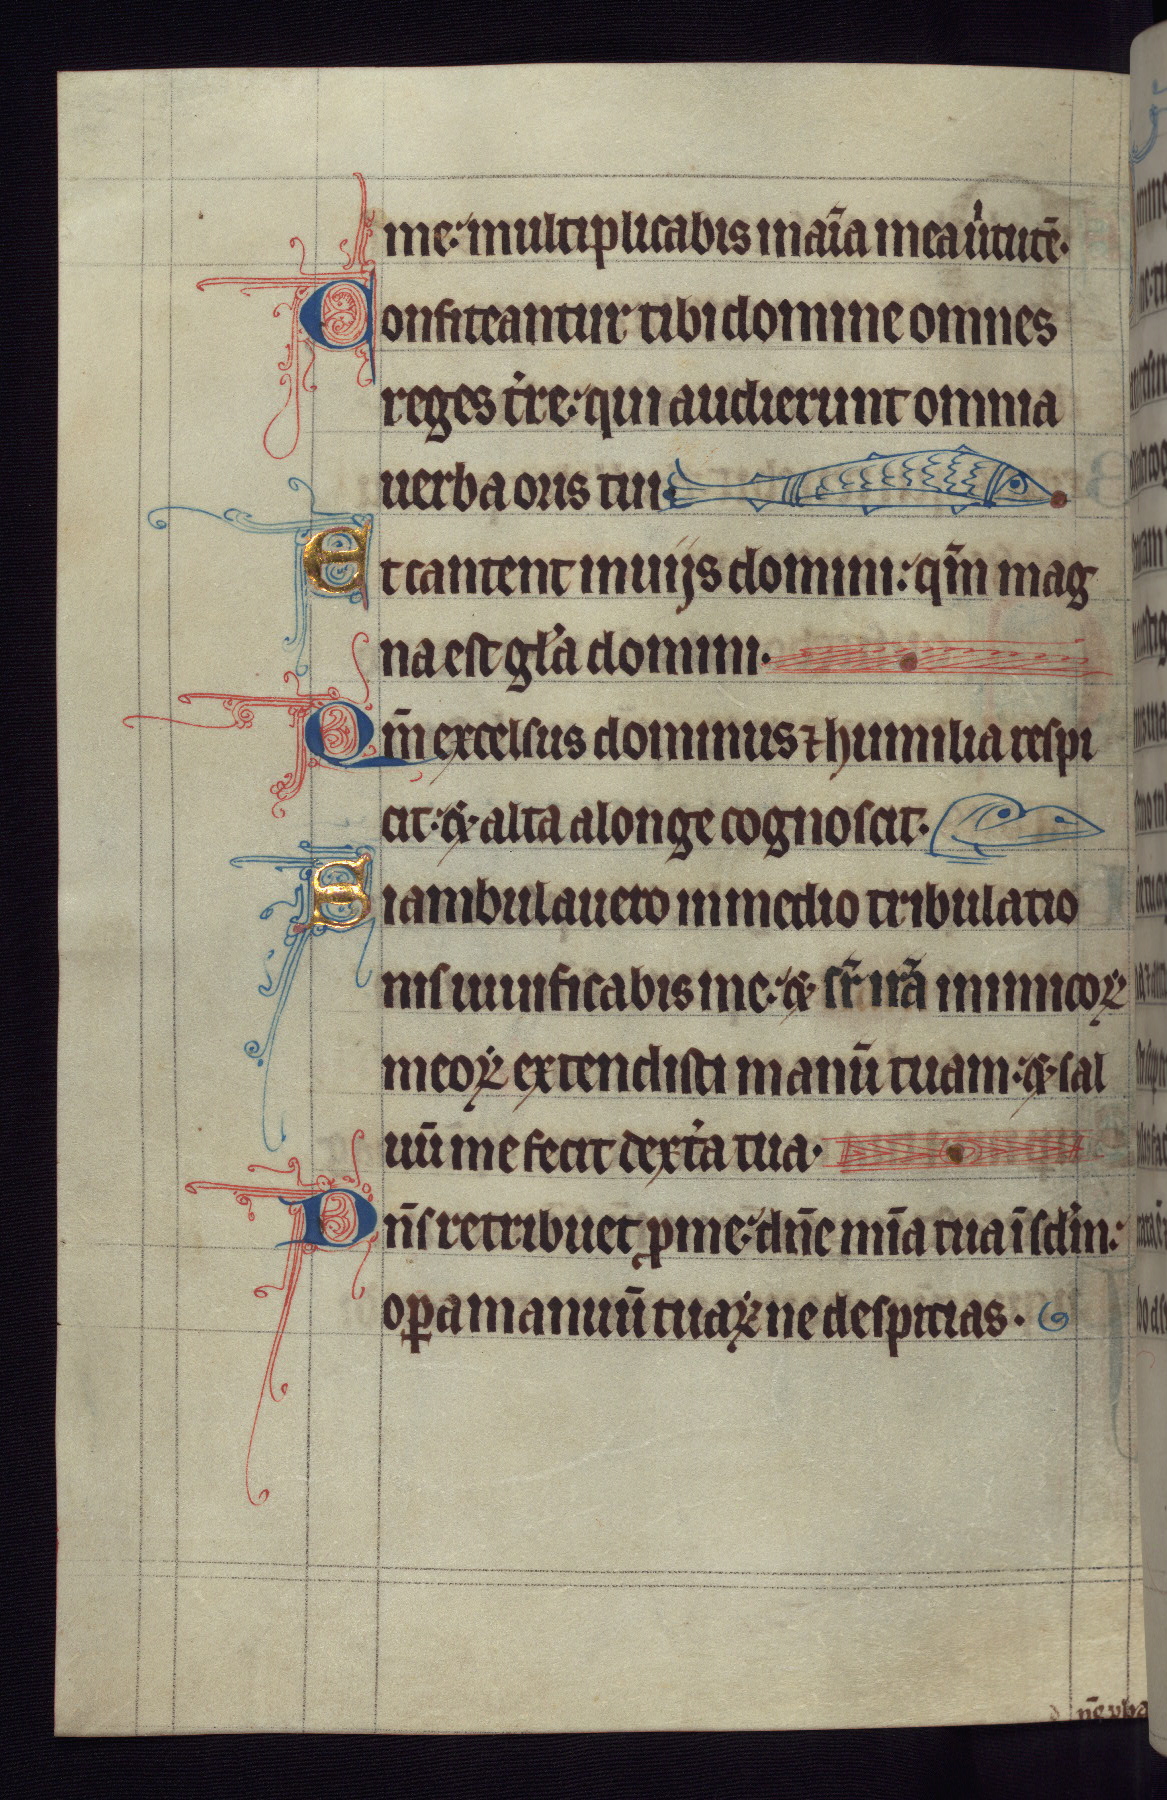 me: multiplicabis in aīa mea ùtutē.
Confiteantur tibi domine omnes
reges t̉re: qui audierunt omnia
uerba oris tui
Et cantent in uijs domini: qm̄ mag
na est gl̉a domini.
Qm̄ excelsus dominus ⁊ humilia respi
cit: & alta a longe cognoscit.
Si ambulauero in medio tribulatio
nis uiuificabis me: & sr̄ irā inimicoꝝ
meoꝝ extendisti manū tuam: & sal
uū me fecit dext̉a tua.
Dn̄s retribuet ꝓ me: dn̄e mīa tua ī sclm̉:
oꝑa manuū tuaꝝ ne despicias.